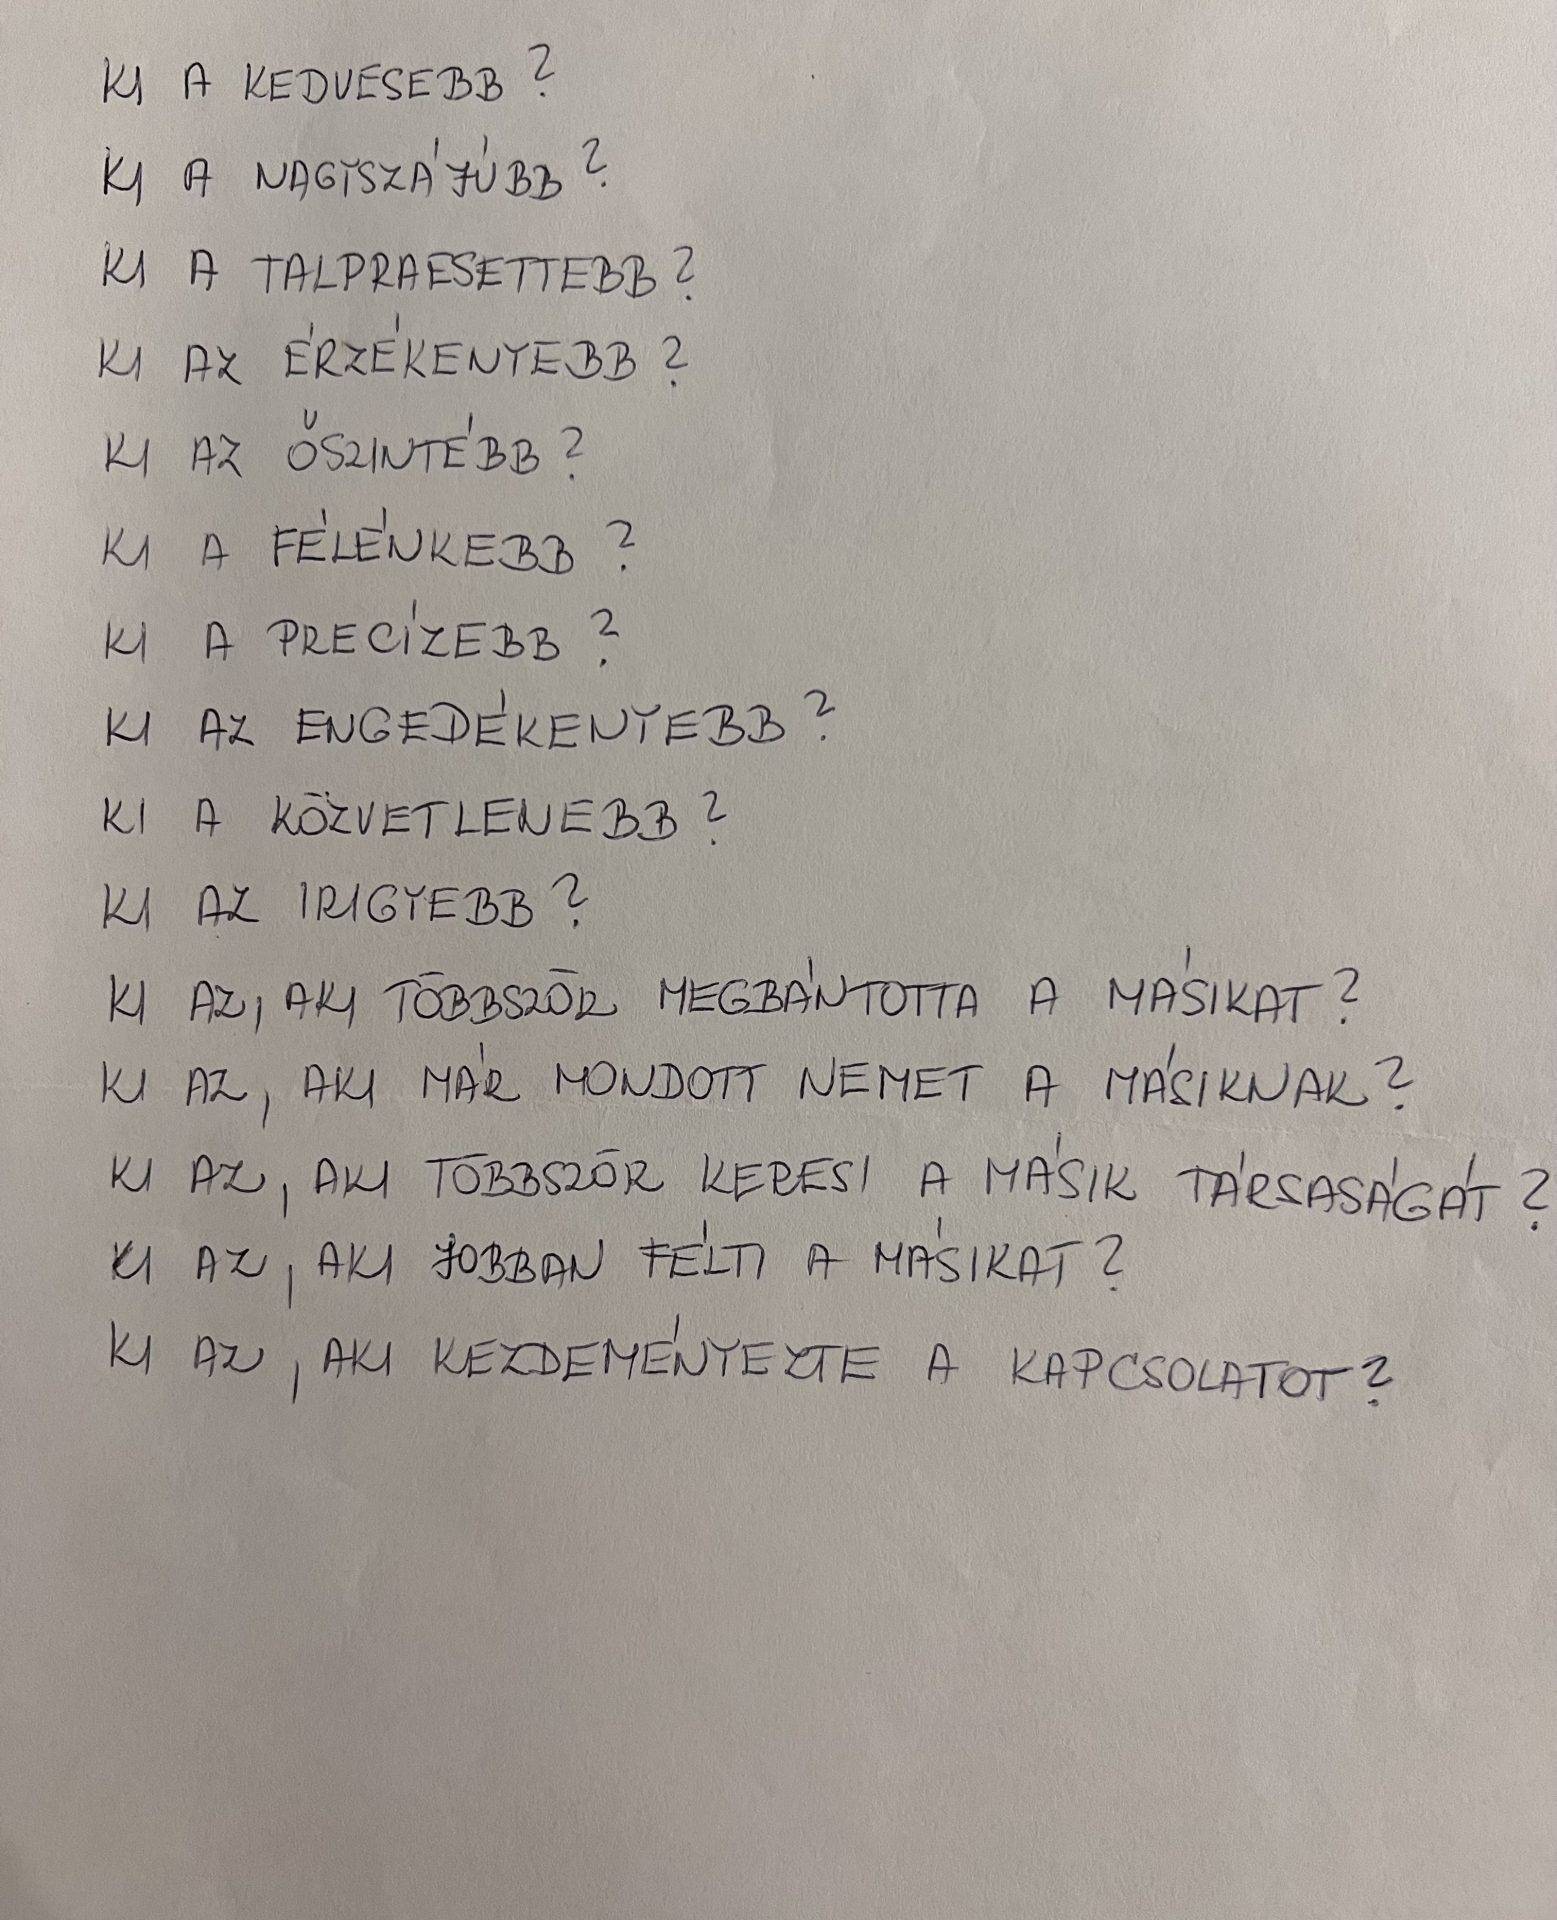 KI A KEDVESEBB?
KI A NAGYSZÁJÚBB?
KI A TALPRAESETTEBB?
KI AZ ÉRZÉKENYEBB?
KI AZ ŐSZINTÉBB?
KI A FÉLÉNKEBB?
KI A PRECÍZEBB?
KI AZ ENGEDÉKENYEBB?
KI A KÖZVETLENEBB?
KI AZ IRIGYEBB?
KI AZ, AKI TÖBBSZÖR MEGBÁNTOTTA A MÁSIKAT?
KI AZ, AKI MÁR MONDOTT NEMET A MÁSIKNAK?
KI AZ, AKI TÖBBSZÖR KERESI A MÁSIK TÁRSASÁGÁT?
KI AZ, AKI JOBBAN FÉLTI A MÁSIKAT?
KI AZ, AKI KEZDEMÉNYEZTE A KAPCSOLATOT?